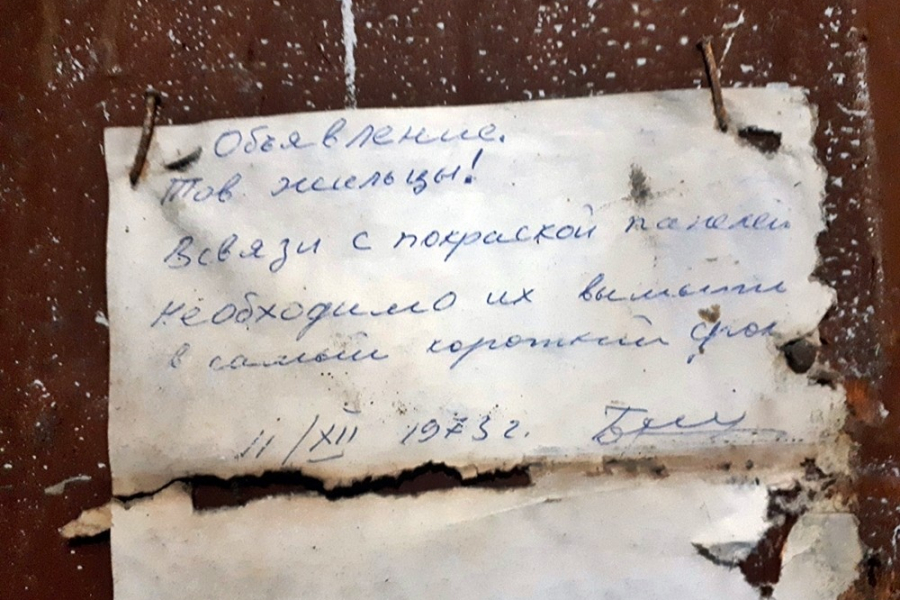 Объявление.
Тов жильцы!
Всвязи с покраской панелей
необходимо их вымыть
в самый короткий срок
11/XII 1973 г.